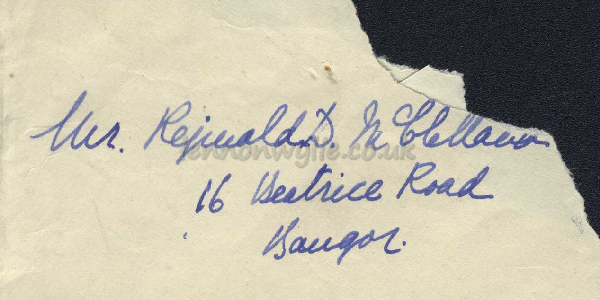 Mr. Reginald D. McClellan
16 Beatrice Road
Bangor.
lennonwylie.co.uk